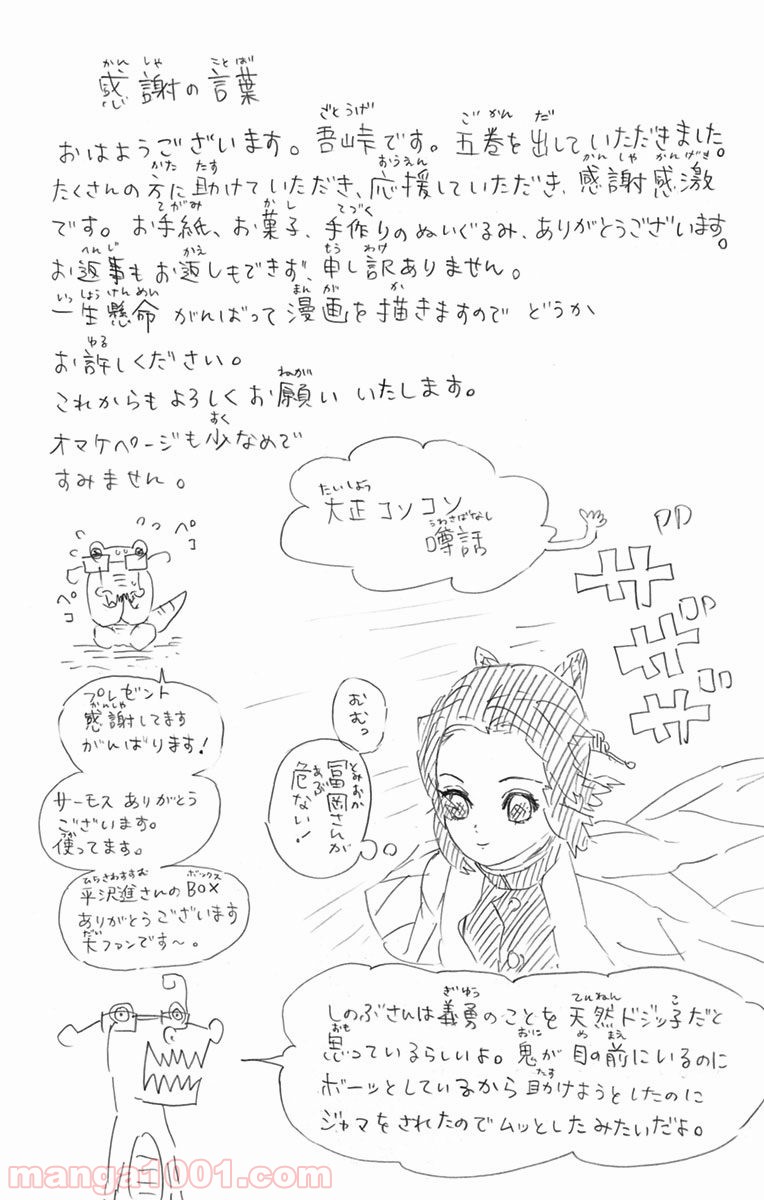 感謝の言葉
おはようございます。吾峠です。五巻を出していただきました。
たくさんの方に助けていただき、応援していただき、感謝感激
です。お手紙、お菓子、手作りのぬいぐるみ、ありがとうございます。
お返事もお返しもできず、申し訳ありません。
一生懸命がんばって漫画を描きますのでどうか
お許しください。
これからもよろしくお願いいたします。
オマケページも少なめで
すみません。
ペコ
ペコ
大正コソコソ
噂話
サ
ザ
ザ
プレゼント
感謝してます
がんばります!
サーモスありがとう
ございます。
使ってます。
平沢進さんのBOX
ありがとうございます
大ファンです〜。
むむっ
冨岡さんが
危ない!
しのぶさんは義勇のことを天然ドジッ子だと
思っているらしいよ。鬼が目の前にいるのに
ボーッとしているから助けようとしたのに
ジャマをされたのでムッとしたみたいだよ。
manga1001.com